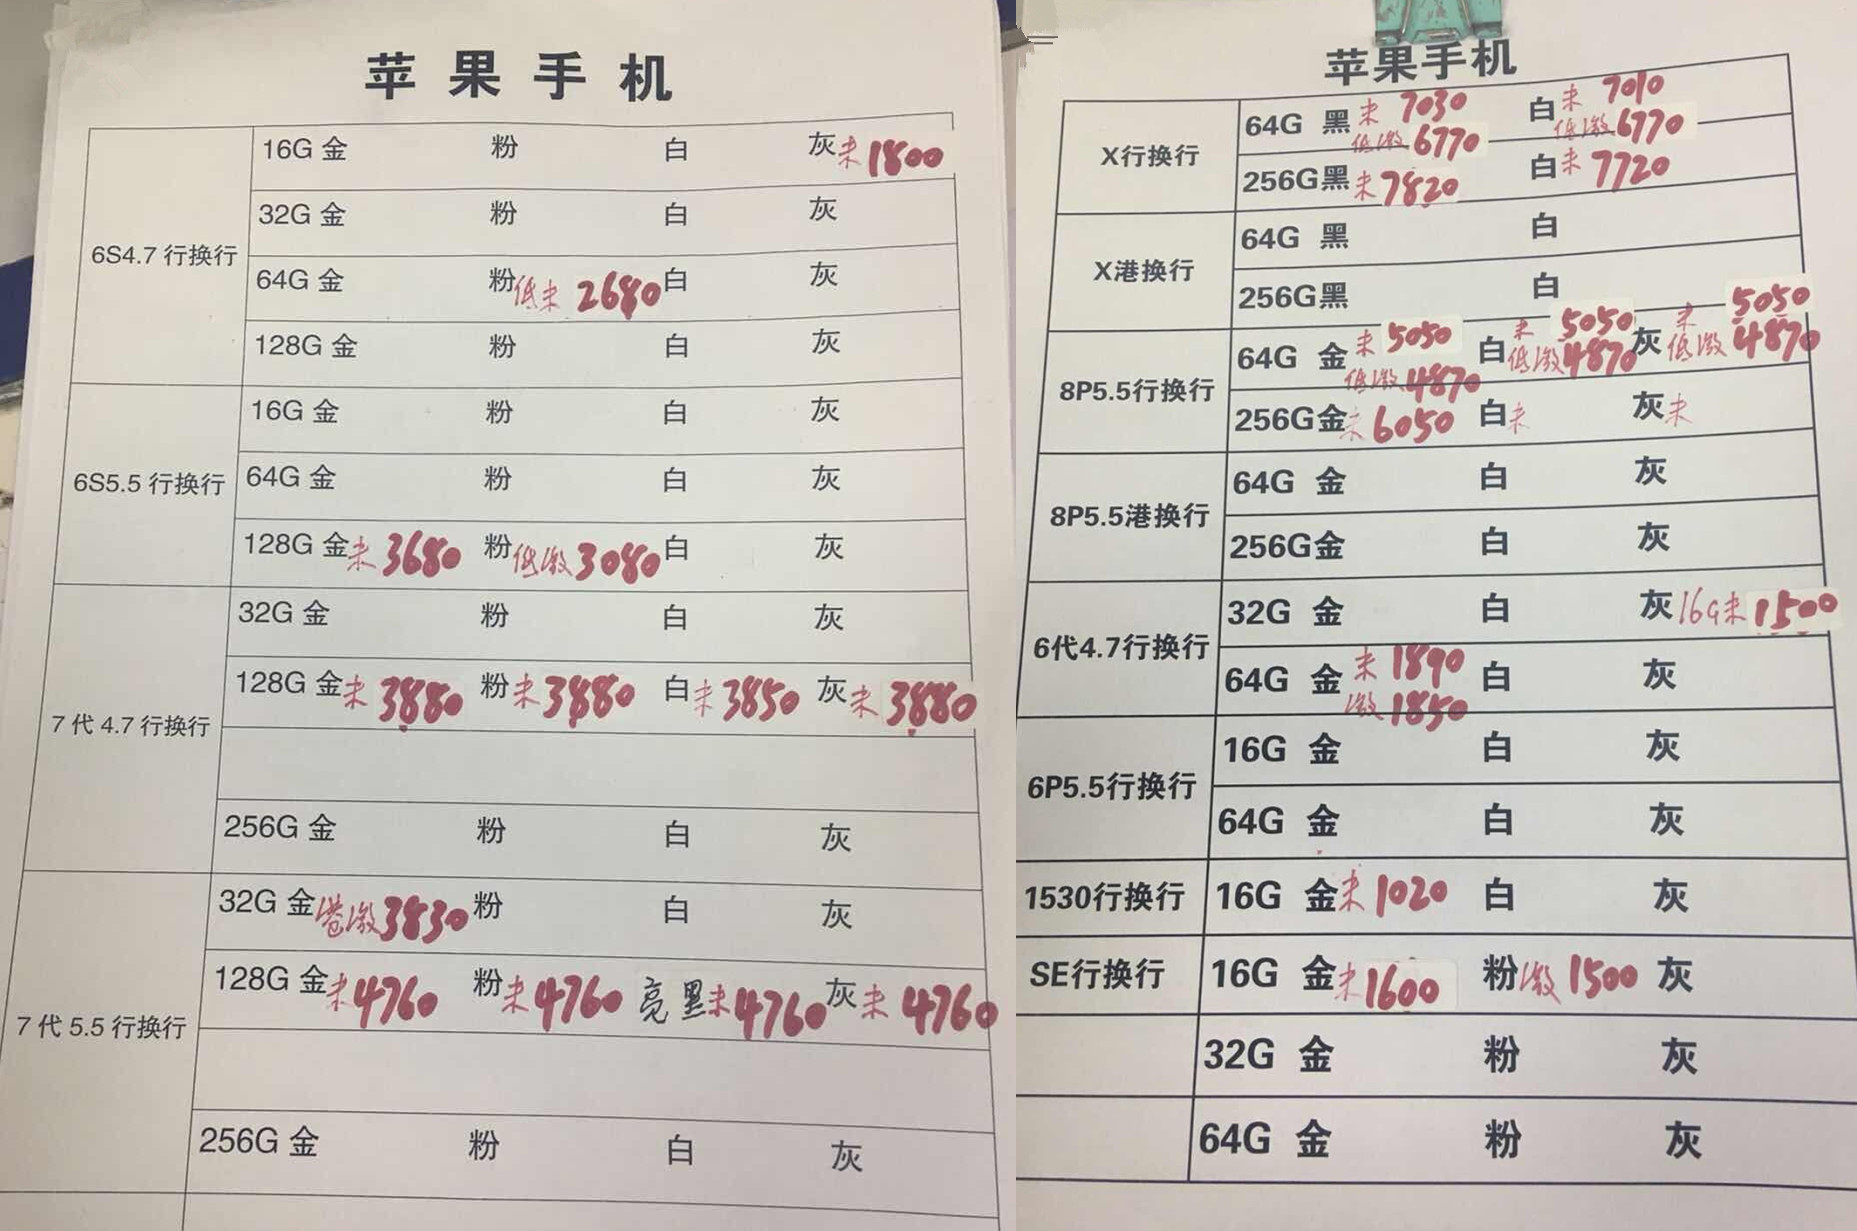 苹果手机
6S4.7 行换行
16G 金 粉 白 灰 未 1800
32G 金 粉 白 灰
64G 金 粉 低未 2680 白 灰
128G 金 粉 白 灰
6S5.5 行换行
16G 金 粉 白 灰
64G 金 粉 白 灰
128G 金 未 3680 粉 低激 3080 白 灰
7 代 4.7 行换行
32G 金 粉 白 灰
128G 金 未 3880 粉 未 3880 白 未 3850 灰 未 3880
256G 金 粉 白 灰
7 代 5.5 行换行
32G 金 港激 3830 粉 白 灰
128G 金 未 4760 粉 未 4760 亮黑 未 4760 灰 未 4760
256G 金 粉 白 灰
苹果手机
X行换行
64G 黑 未 7030 白 未 7010
低激 6770 低激 6770
256G黑 未 7820 白 未 7720
X港换行
64G 黑 白
256G黑 白
8P5.5行换行
64G 金 未 5050 白 未 5050 灰 未 5050
低激 4870 低激 4870 低激 4870
256G金 未 6050 白 未 灰 未
8P5.5港换行
64G 金 白 灰
256G金 白 灰
6代4.7行换行
32G 金 白 灰 16G未 1500
64G 金 未 1890 白 灰
激 1850
6P5.5行换行
16G 金 白 灰
64G 金 白 灰
1530行换行
16G 金 未 1020 白 灰
SE行换行
16G 金 未 1600 粉 激 1500 灰
32G 金 粉 灰
64G 金 粉 灰